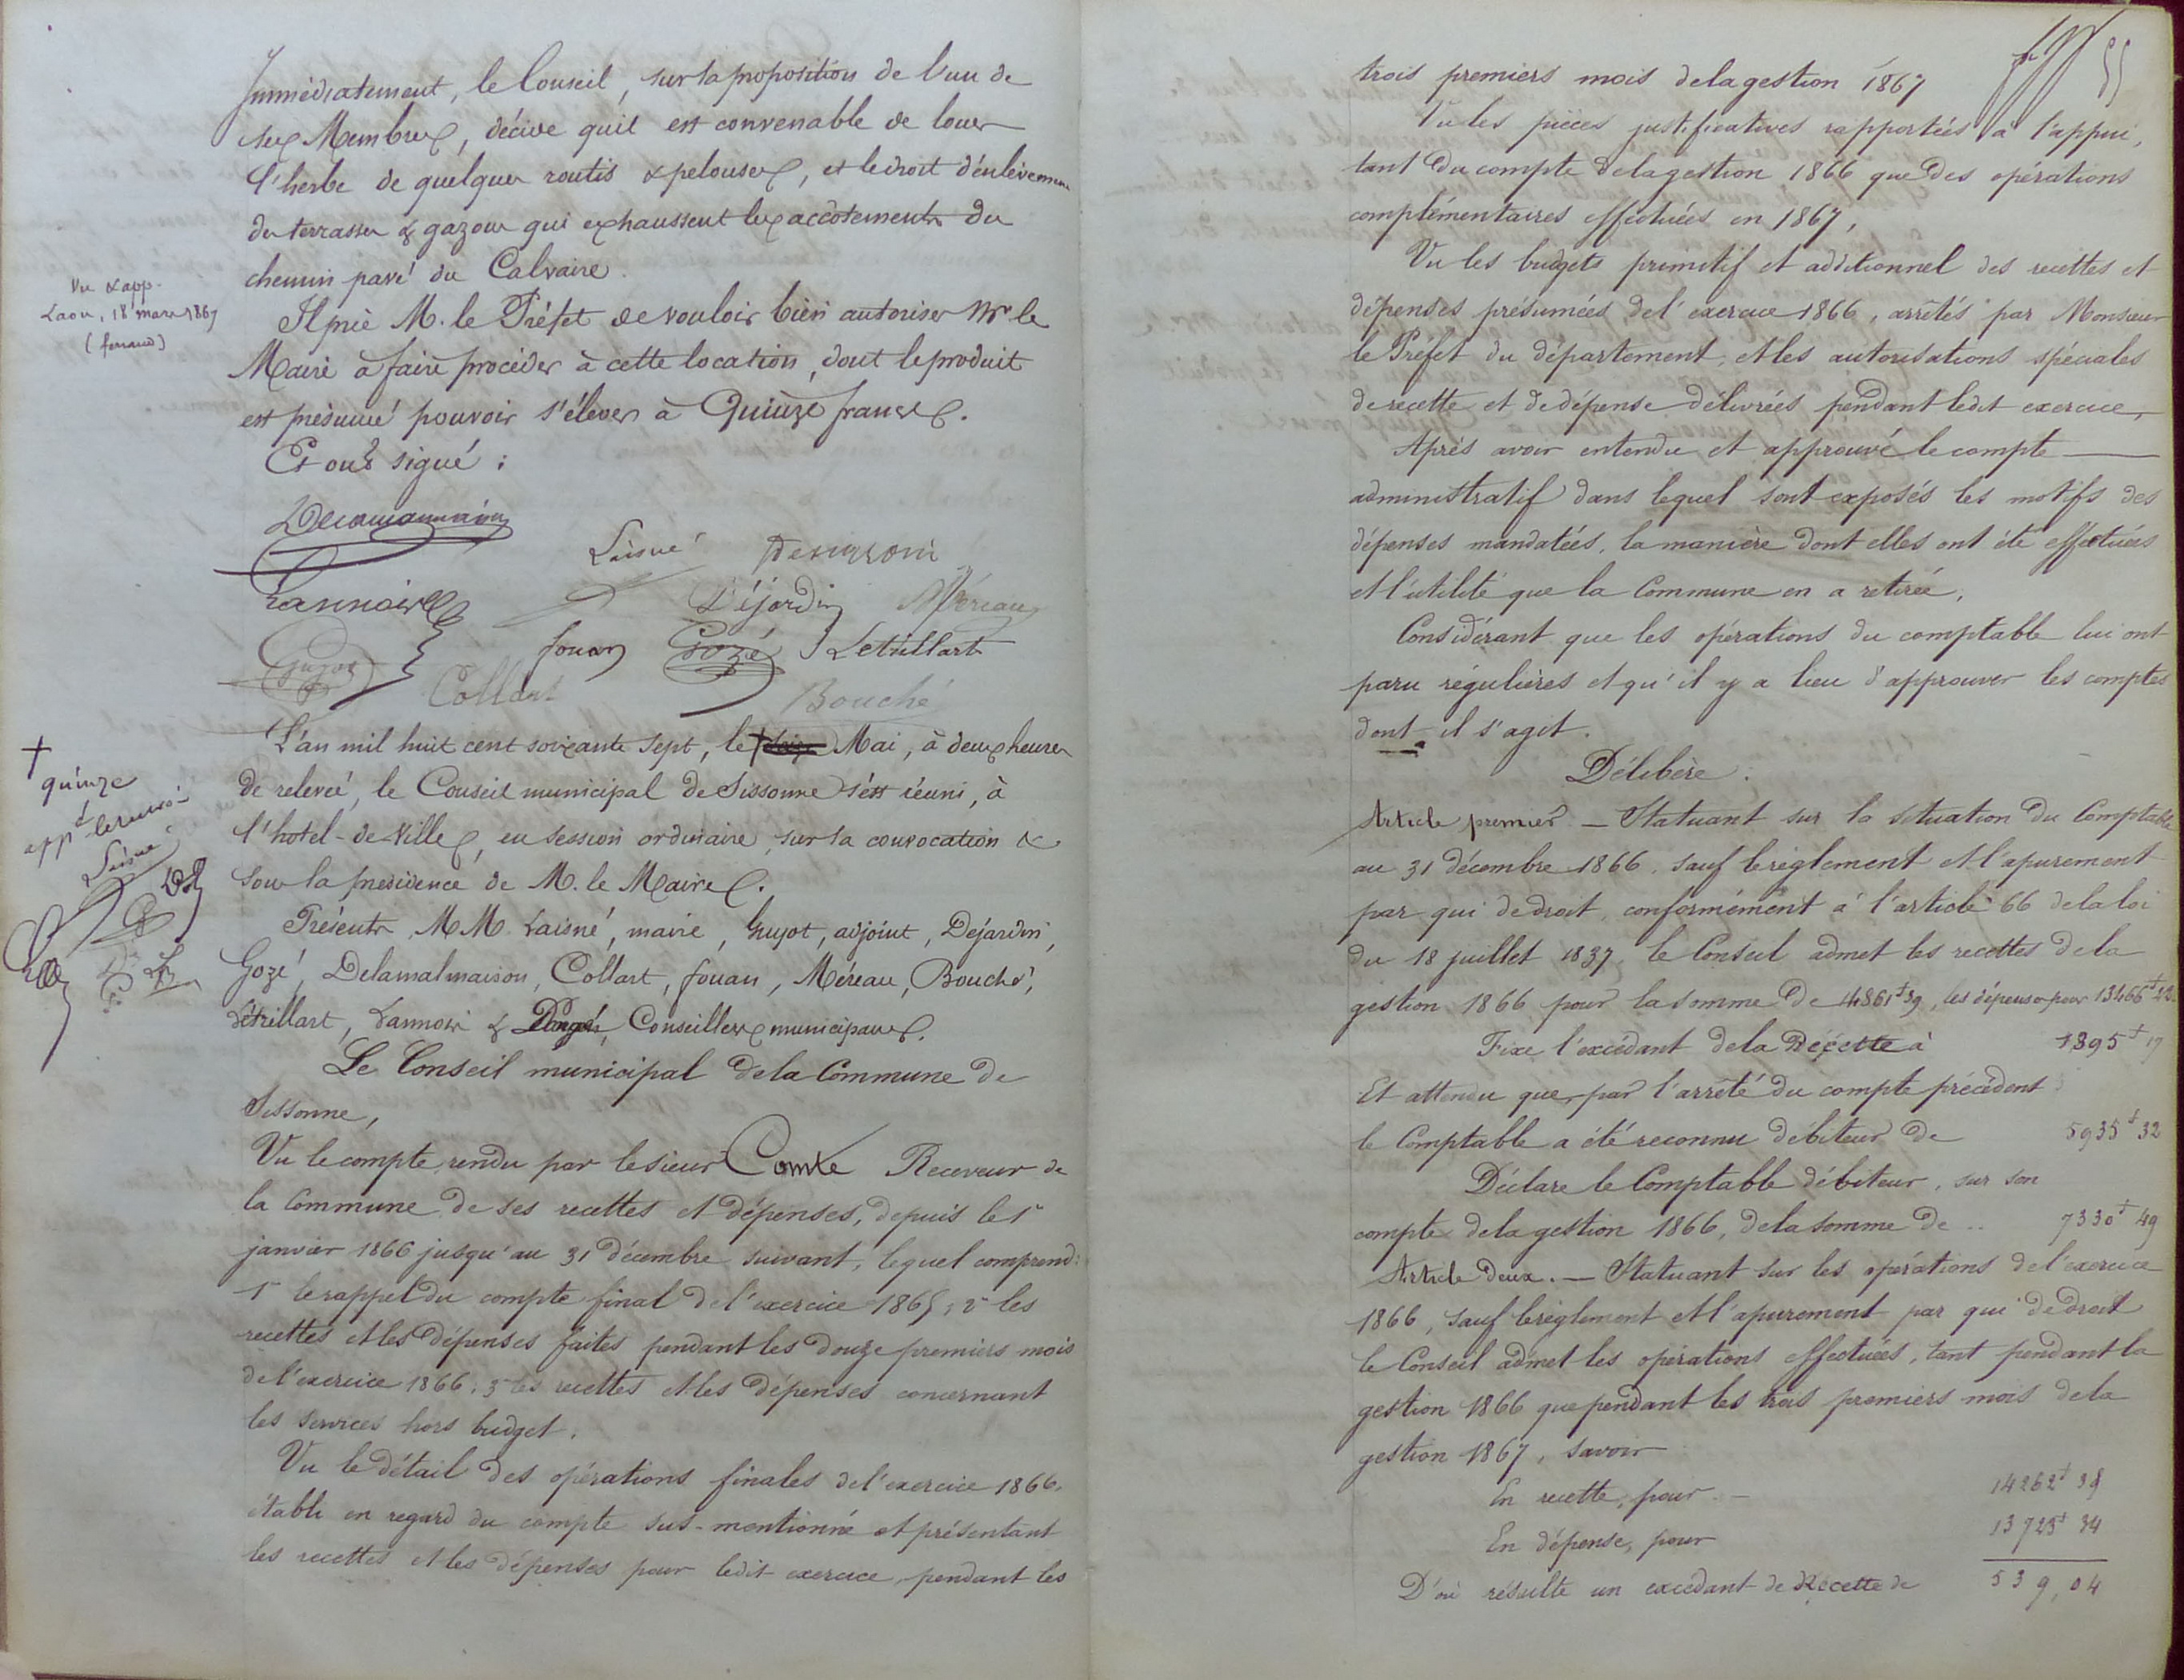 Immédiatement, le Conseil, sur la proposition de l'un de
ses Membres, décide qu'il est convenable de louer
l'herbe de quelques routis & pelouses, et le droit d'enlèvement
des terrasses & gazons qui exhaussent les accotements du
chemin pavé du Calvaire.
Vu & app.
Laon, 18 mars 1867
(ferrand)
Il prie M. le Préfet de vouloir bien autoriser Mr le
Maire à faire procéder à cette location, dont le produit
est présumé pouvoir s'élever à Quinze francs.
Et ont signé :
Delamalmaison
Laisné
Lannois
Déjardin Méreau
Guyot fouan Gozé Létrillart
Collart Bouché
L'an mil huit cent soixante sept, le + Mai, à deux heures
de relevée, le Conseil municipal de Sissonne s'est réuni, à
l'hotel-de-Ville, en session ordinaire, sur la convocation &
sous la présidence de M. le Maire.
+
quinze
appt le renvoi
Laisné
Présents MM. Laisné, maire, Guyot, adjoint, Déjardin,
Gozé, Delamalmaison, Collart, fouan, Méreau, Bouché,
Létrillart, Lannois & Conseillers municipaux.
Le Conseil municipal de la Commune de
Sissonne,
Vu le compte rendu par le sieur Comte Receveur de
la Commune de ses recettes et dépenses, depuis le 1er
janvier 1866 jusqu'au 31 décembre suivant, lequel comprend :
1º le rappel du compte final de l'exercice 1865 ; 2º les
recettes et les dépenses faites pendant les douze premiers mois
de l'exercice 1866 ; 3º les recettes et les dépenses concernant
les services hors budget.
Vu le détail des opérations finales de l'exercice 1866,
établi en regard du compte sus-mentionné et présentant
les recettes et les dépenses pour ledit exercice, pendant les
55
trois premiers mois de la gestion 1867
Vu les pièces justificatives rapportées à l'appui,
tant du compte de la gestion 1866 que des opérations
complémentaires effectuées en 1867,
Vu les budgets primitif et additionnel des recettes et
dépenses présumées de l'exercice 1866, arrêtés par Monsieur
le Préfet du département, et les autorisations spéciales
de recette et de dépense délivrées pendant ledit exercice,
Après avoir entendu et approuvé le compte
administratif dans lequel sont exposés les motifs des
dépenses mandatées, la manière dont elles ont été effectuées
et l'utilité que la Commune en a retirée,
Considérant que les opérations du comptable lui ont
paru régulières et qu'il y a lieu d'approuver les comptes
dont il s'agit.
Délibère :
Article premier — Statuant sur la situation du Comptable
au 31 décembre 1866, sauf le règlement et l'apurement
par qui de droit, conformément à l'article 66 de la loi
du 18 juillet 1837, le Conseil admet les recettes de la
gestion 1866 pour la somme de 14861f 39, les dépenses pour 13466f 22
Fixe l'excédant de la Recette à 1395f 17
Et attendu que, par l'arrêté du compte précédent
le Comptable a été reconnu débiteur de 5935f 32
Déclare le Comptable débiteur, sur son
compte de la gestion 1866, de la somme de .. 7330f 49
Article Deux. — Statuant sur les opérations de l'exercice
1866, sauf le règlement et l'apurement par qui de droit
le Conseil admet les opérations effectuées, tant pendant la
gestion 1866 que pendant les trois premiers mois de la
gestion 1867, savoir
En recette, pour — 14262f 38
En dépense, pour 13723f 34
D'où résulte un excédant de Recette de 539,04